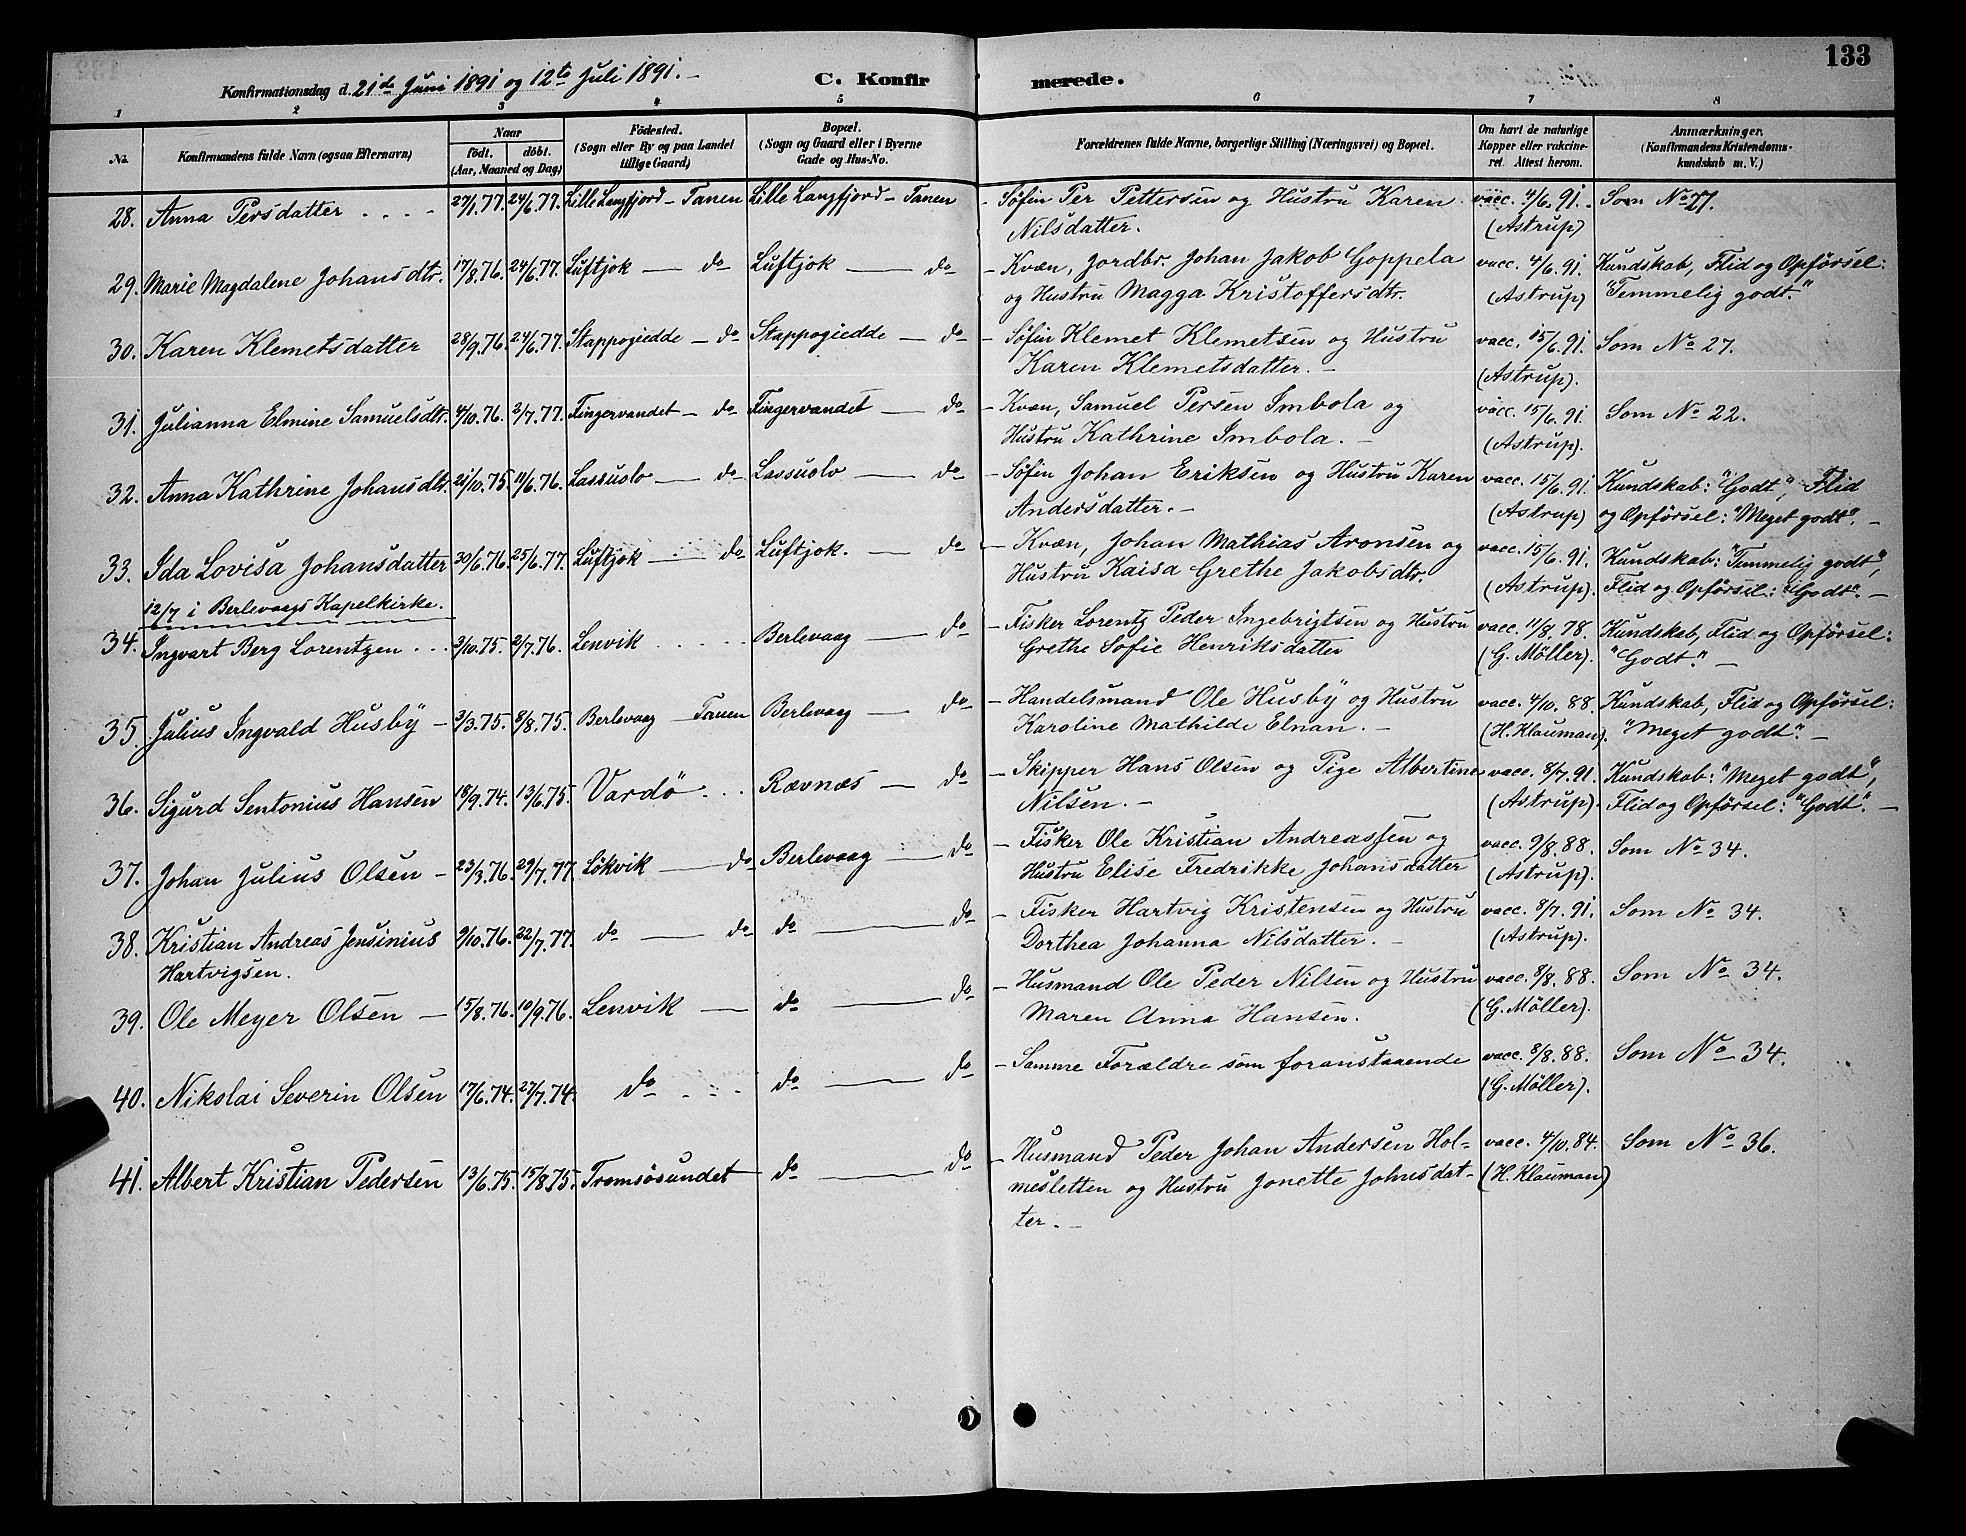 133
Konfirmationsdag d. 21de Juni 1891 og 12te Juli 1891. –
C. Konfirmerede.
1 2 3 4 5 6 7 8
No.
Konfirmandens fulde Navn (ogsaa Efternavn)
Naar
födt. döbt.
(Aar, Maaned og Dag)
Födested.
(Sogn eller By og paa Landet
tillige Gaard)
Bopæl.
(Sogn og Gaard eller i Byerne
Gade og Hus-No.
Forældrenes fulde Navne, borgerlige Stilling (Næringsvei) og Bopæl.
Om havt de naturlige
Kopper eller vakcine-
ret. Attest herom.
Anmærkninger.
(Konfirmandens Kristendoms-
kundskab m. V.)
28. Anna Persdatter . . . - 27/1.77. 24/6.77. Lille Langfjord – Tanen Lille Langfjord – Tanen – Søfin Per Pettersen og Hustru Karen vacc. 4/6. 91. Som No 27.
Nilsdatter. (Astrup)
29. Marie Magdalene Johansdtr. 17/8.76. 24/6.77. Luftjok — do Luftjok — do – Kvæn, Jordbr. Johan Jakob Goppela vacc. 4/6. 91. Kundskab, Flid og Opförsel:
og Hustru Magga Kristoffersdtr. (Astrup) "Temmelig godt."
30. Karen Klemetsdatter 28/9.76. 24/6.77. Stappogiedde – do Stappogiedde — do – Søfin Klemet Klemetsen og Hustru vacc. 15/6. 91. Som No 27.
Karen Klemetsdatter. – (Astrup).
31. Julianna Elmine Samuelsdtr. 4/10.76. 2/7.77. Fingervandet – do Fingervandet — do – Kvæn, Samuel Persen Imbola og vacc. 15/6. 91. Som No 22.
Hustru Kathrine Imbola. – (Astrup).
32. Anna Kathrine Johansdtr. 21/10.75. 11/6.76. Lassuolv — do Lassuolv — do – Søfin Johan Eriksen og Hustru Karen vacc. 15/6. 91. Kundskab: "Godt", Flid
Andersdatter. – (Astrup) og Opförsel: "Meget godt". –
33. Ida Lovisa Johansdatter 30/6.76. 25/6.77. Luftjok — do Luftjok. — do – Kvæn, Johan Mathias Aronsen og vacc. 15/6. 91. Kundskab: "Temmelig godt",
Hustru Kaisa Grethe Jakobsdtr. (Astrup). Flid og Opförsel: "Godt". –
12/7 i Berlevaags Kapelkirke.
34. Ingvart Berg Lorentzen . . . 3/10.75. 2/7.76. Lenvik . . . . Berlevaag — do – Fisker Lorentz Peder Ingebrigtsen og Hustru vacc. 11/8. 78. Kundskab, Flid og Opförsel:
Grethe Sofie Henriksdatter (G. Möller). "Godt". –
35. Julius Ingvald Husbÿ – 3/3.75. 8/8.75. Berlevaag – Tanen Berlevaag — do – Handelsmand Ole Husbÿ og Hustru vacc. 4/10. 88. Kundskab, Flid og Opförsel:
Karoline Mathilde Elnan. – (H. Klauman). "Meget godt". –
36. Sigurd Sentonius Hansen 18/9.74. 13/6.75. Vardö . . . Rævnæs — do – Skipper Hans Olsen og Pige Albertine vacc. 8/7. 91. Kundskab: "Meget godt",
Nilsen. – (Astrup). Flid og Opförsel: "Godt". –
37. Johan Julius Olsen – 23/3.76. 29/7.77 Lökvik — do Berlevaag — do – Fisker Ole Kristian Andreassen og vacc. 9/8. 88. Som No 34.
Hustru Elise Fredrikke Johansdatter (Astrup).
38. Kristian Andreas Jensinius 9/10.76. 22/7.77. do — do do — do – Fisker Hartvig Kristensen og Hustru vacc. 8/7. 91. Som No 34.
Hartvigsen. Dorthea Johanna Nilsdatter. – (Astrup).
39. Ole Meyer Olsen – 15/8.76. 10/9.76. Lenvik — do — do – Husmand Ole Peder Nilsen og Hustru vacc. 8/8. 88. Som No 34.
Maren Anna Hansen. (G. Möller).
40. Nikolai Severin Olsen 17/6.74. 27/7.74. do . . . do — do – Samme Forældre som foranstaaende vacc. 8/8. 88. Som No 34.
(G. Möller).
41. Albert Kristian Pedersen 13/6.75. 15/8.75. Tromsösundet do — do – Husmand Peder Johan Andersen Hol- vacc. 4/10. 84. Som No 36.
mesletten og Hustru Jonette Johnsdat- (H. Klauman)
ter. –